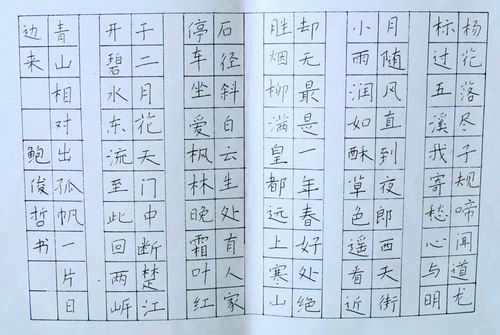 杨花落尽子规啼闻道龙
标过五溪我寄愁心与明
月随风直到夜郎西天街
小雨润如酥草色遥看近
却无最是一年春好处绝
胜烟柳满皇都远上寒山
石径斜白云生处有人家
停车坐爱枫林晚霜叶红
于二月花天门中断楚江
开碧水东流至此回两岸
青山相对出孤帆一片日
边来 鲍俊哲书